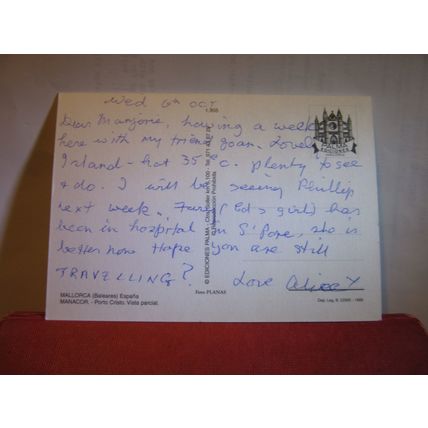 Wed 6th OCT
1.955
Dear Marjorie, having a week
here with my friend Joan. Lovely
Island - hot 35°c. plenty to see
& do. I will be seeing Phillip
next week. (Ed's girl) has
been in hospital in S'Pore, she is
better now Hope you are still
TRAVELLING?
Love Alice
© EDICIONES PALMA
Prohibida
PALMA
EDICIONES
MALLORCA (Baleares) España
MANACOR. - Porto Cristo. Vista parcial.
Foto PLANAS
Dep. Leg. B.